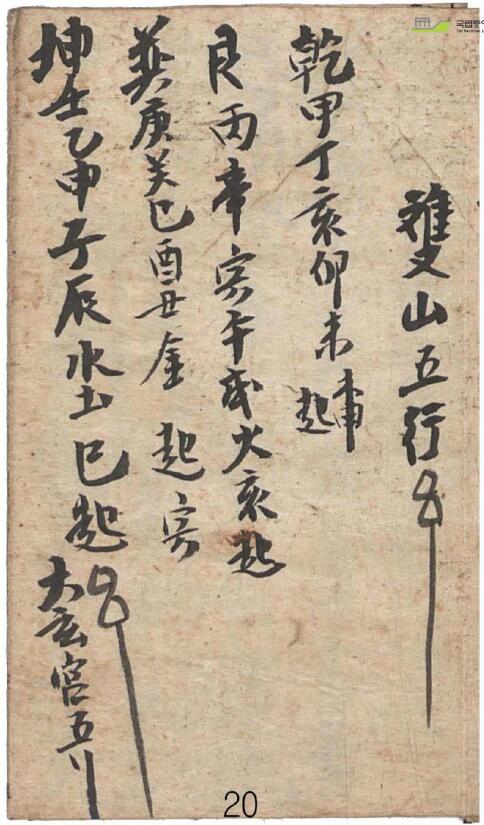 雙山五行
乾甲丁亥卯未木申起
艮丙辛寅午戌火亥起
巽庚癸巳酉丑金 起寅
坤壬乙申子辰水土巳起
大玄宮五行
20